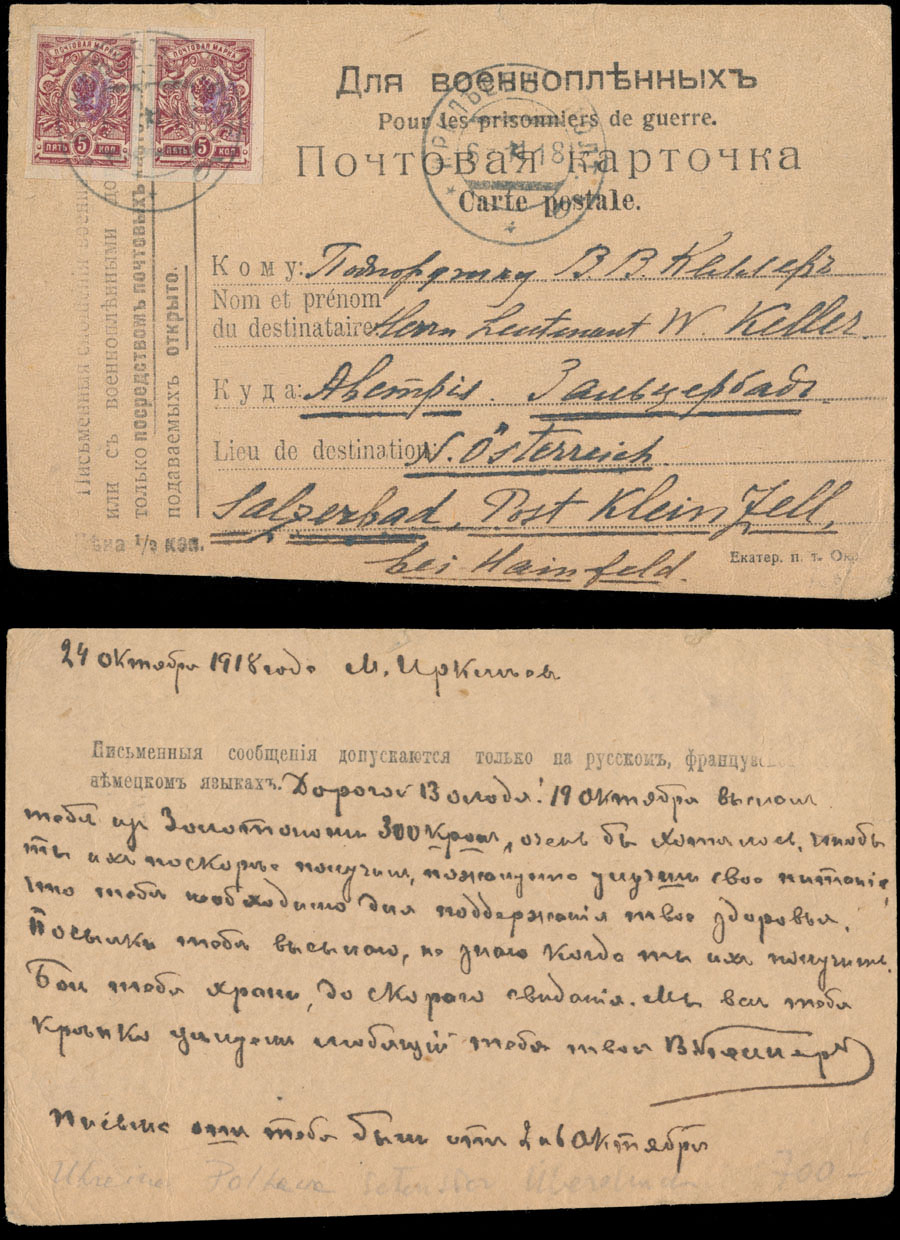 ПОЧТОВАЯ МАРКА ПОЧТОВАЯ МАРКА
5 5
ПЯТЬ 5 КОП ПЯТЬ 5 КОП
Для военноплѣнныхъ
Pour les prisonniers de guerre.
Почтовая карточка
Carte postale.
Письменныя сношенія
или съ военноплѣнными
только посредствомъ почтовыхъ
подаваемыхъ открыто.
Кому: В. В. Келлеръ
Nom et prénom
du destinataire: Herrn Leutenant W. Keller
Куда: Австрія. Зальцербадъ
Lieu de destination: N. Österreich
Salzerbad, Post Klein Zell,
bei Hainfeld.
Цѣна 1/2 коп.
Екатер. п. т. Окр
24 Октября 1918 года М.
Письменныя сообщенія допускаются только на русскомъ,
нѣмецкомъ языкахъ. Дорогой Володя! 19 Октября выслал
тебѣ из Золотоноши 300 крон, очень бы хотѣлось, чтобы
ты их поскорѣе получил, пожалуйста улучши свое питаніе,
что тебѣ необходимо для поддержанія твое здоровья.
Посылки тебѣ высылаю, не знаю когда ты их получишь.
Бог тебя храни, до скораго свиданія. Мы все тебя
крѣпко цѣлуем любящій тебя твой
от тебя были от 2 и 6 Октября
Ukraine Poltava
700-